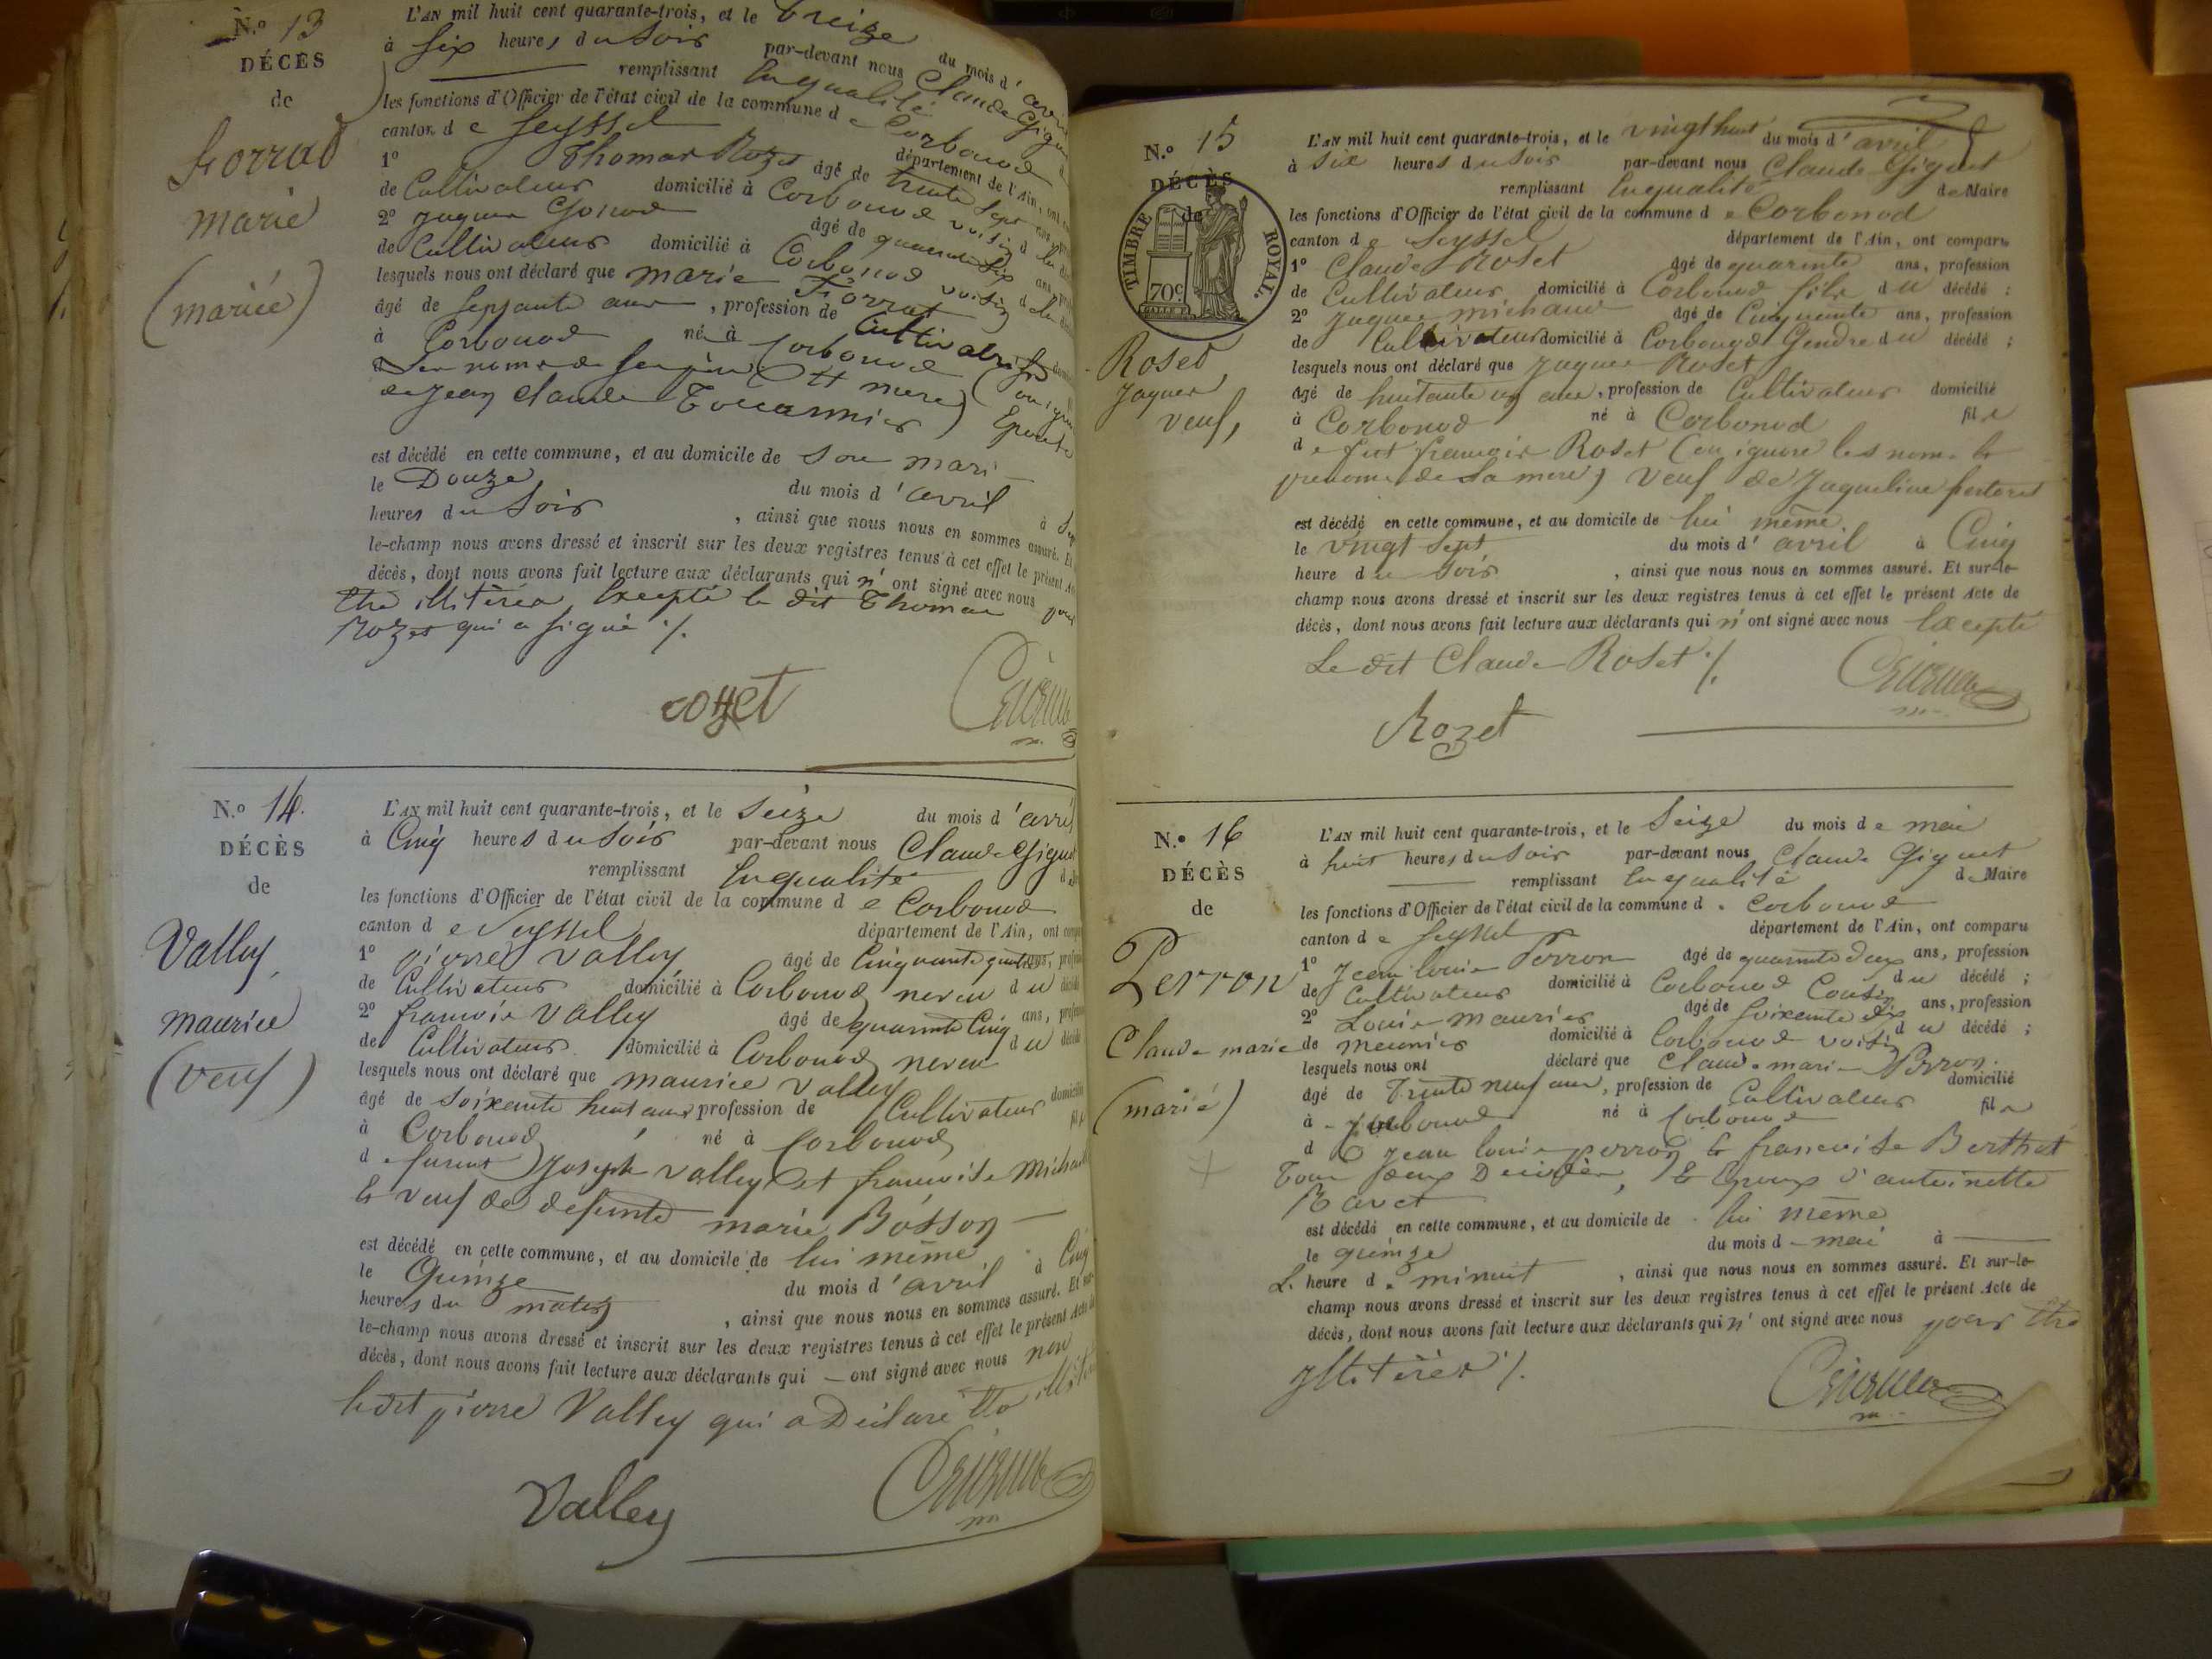 N.º 13
DÉCÈS
de
marie
(mariée)
L'AN mil huit cent quarante-trois, et le Treize du mois d'
à six heures du soir par-devant nous Claude
remplissant en qualité
les fonctions d'Officier de l'état civil de la commune de Corbonod
canton de Seyssel département de l'Ain,
1º Thomas Rozet âgé de trente sept
de Cultivateur domicilié à Corbonod voisin
2º Jaques Gonod âgé de quarante six ans
de Cultivateur domicilié à Corbonod voisin
lesquels nous ont déclaré que marie
âgé de sepsante ans, profession de Cultivatrice
à Corbonod né à Corbonod
de Jean Claude
est décédé en cette commune, et au domicile de son mari
le Douze du mois d'avril à
heures du soir, ainsi que nous nous en sommes assuré. Et
le-champ nous avons dressé et inscrit sur les deux registres tenus à cet effet le présent
décès, dont nous avons fait lecture aux déclarants qui n'ont signé avec nous pour
être illitérés excepté le dit Thomas
Rozet qui a signé ./.
N.º 14.
DÉCÈS
de
Valley
maurice
(veuf)
L'AN mil huit cent quarante-trois, et le seize du mois d'avril
à Cinq heures du soir par-devant nous Claude Giguet
remplissant en qualité
les fonctions d'Officier de l'état civil de la commune de Corbonod
canton de Seyssel département de l'Ain, ont
1º pierre Valley âgé de Cinquante quatre ans,
de Cultivateur domicilié à Corbonod neveu du
2º françois Valley âgé de quarante Cinq ans,
de Cultivateur domicilié à Corbonod neveu du
lesquels nous ont déclaré que maurice Valley
âgé de soixante huit ans profession de Cultivateur domicilié
à Corbonod né à Corbonod
de furent Joseph Valley et françoise
& veuf de defunte marie Bosson
est décédé en cette commune, et au domicile de lui même
le Quinze du mois d'avril à Cinq
heures du matin, ainsi que nous nous en sommes assuré. Et sur-
le-champ nous avons dressé et inscrit sur les deux registres tenus à cet effet le présent Acte
décès, dont nous avons fait lecture aux déclarants qui — ont signé avec nous non
ledit pierre Valley qui a Déclaré être
Valley
N.º 15
DÉCÈS
de
TIMBRE ROYAL.
70c
Roset
Jaques
veuf,
L'AN mil huit cent quarante-trois, et le vingt huit du mois d'avril
à six heures du soir par-devant nous Claude Giguet
remplissant en qualité de Maire
les fonctions d'Officier de l'état civil de la commune de Corbonod
canton de Seyssel département de l'Ain, ont comparu
1º Claude Roset âgé de quarente ans, profession
de Cultivateur domicilié à Corbonod fils du décédé ;
2º Jaques michaud âgé de Cinquante ans, profession
de Cultivateur domicilié à Corbonod Gendre du décédé ;
lesquels nous ont déclaré que Jaques Roset
âgé de huitante un ans, profession de Cultivateur domicilié
à Corbonod né à Corbonod fils
de fut françois Roset (on ignore les noms &
prenoms de sa mere) veuf de Jaqueline
est décédé en cette commune, et au domicile de lui même
le vingt sept du mois d'avril à Cinq
heure du soir, ainsi que nous nous en sommes assuré. Et sur-le-
champ nous avons dressé et inscrit sur les deux registres tenus à cet effet le présent Acte de
décès, dont nous avons fait lecture aux déclarants qui n'ont signé avec nous Excepté
Le dit Claude Roset ./.
Rozet
N.º 16
DÉCÈS
de
Perron
Claude marie
(marié)
L'AN mil huit cent quarante-trois, et le seize du mois de mai
à huit heures du soir par-devant nous Claude Giguet
remplissant en qualité de Maire
les fonctions d'Officier de l'état civil de la commune de Corbonod
canton de Seyssel département de l'Ain, ont comparu
1º Jean louis Perron âgé de quarante deux ans, profession
de Cultivateur domicilié à Corbonod Cousin du décédé ;
2º Louis maurier âgé de soixante dix ans, profession
de meunier domicilié à Corbonod voisin du décédé ;
lesquels nous ont déclaré que Claude marie Perron
âgé de Trente neuf ans, profession de Cultivateur domicilié
à Corbonod né à Corbonod fils
de Jean louis perron & francoise Berthet
Tous deux Décédés, & Epoux d'antoinette
Ravet
est décédé en cette commune, et au domicile de lui même
le quinze du mois de mai à
L. heure de minuit, ainsi que nous nous en sommes assuré. Et sur-le-
champ nous avons dressé et inscrit sur les deux registres tenus à cet effet le présent Acte de
décès, dont nous avons fait lecture aux déclarants qui n'ont signé avec nous pour être
yllitérés ./.